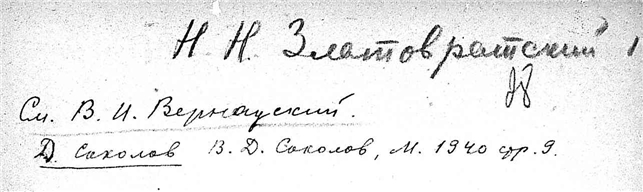 Н. Н. Златовратский 1
См. В. И. Вернадский.
Д. Соколов В. Д. Соколов, М. 1940 стр. 9.